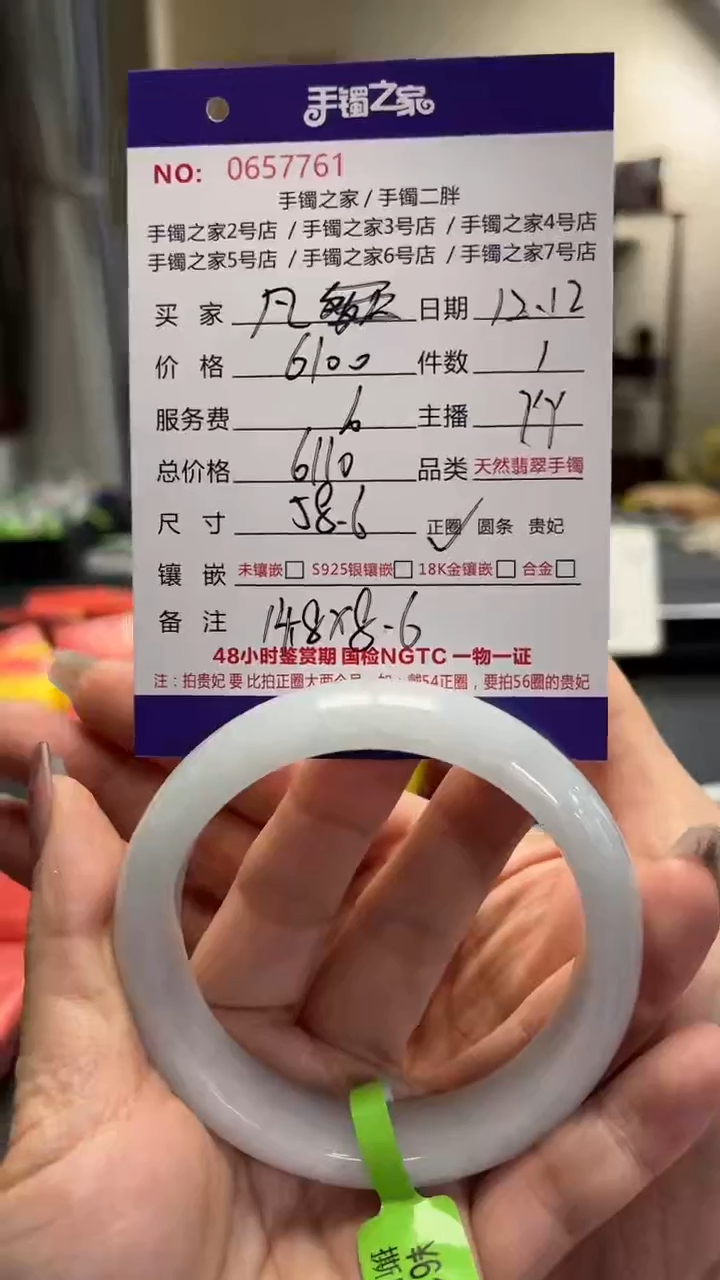 手镯之家
NO: 0657761
手镯之家 / 手镯二胖
手镯之家2号店 / 手镯之家3号店 / 手镯之家4号店
手镯之家5号店 / 手镯之家6号店 / 手镯之家7号店
买 家 凡 日期 12.12
价 格 6100 件数 1
服务费 主播
总价格 6110 品类 天然翡翠手镯
尺 寸 58.6 正圈 圆条 贵妃
镶 嵌 未镶嵌 S925银镶嵌 18K金镶嵌 合金
备 注 14.8×8.6
48小时鉴赏期 国检NGTC 一物一证
注：拍贵妃 要 比拍正圈大两个号 如：戴54正圈，要拍56圈的贵妃